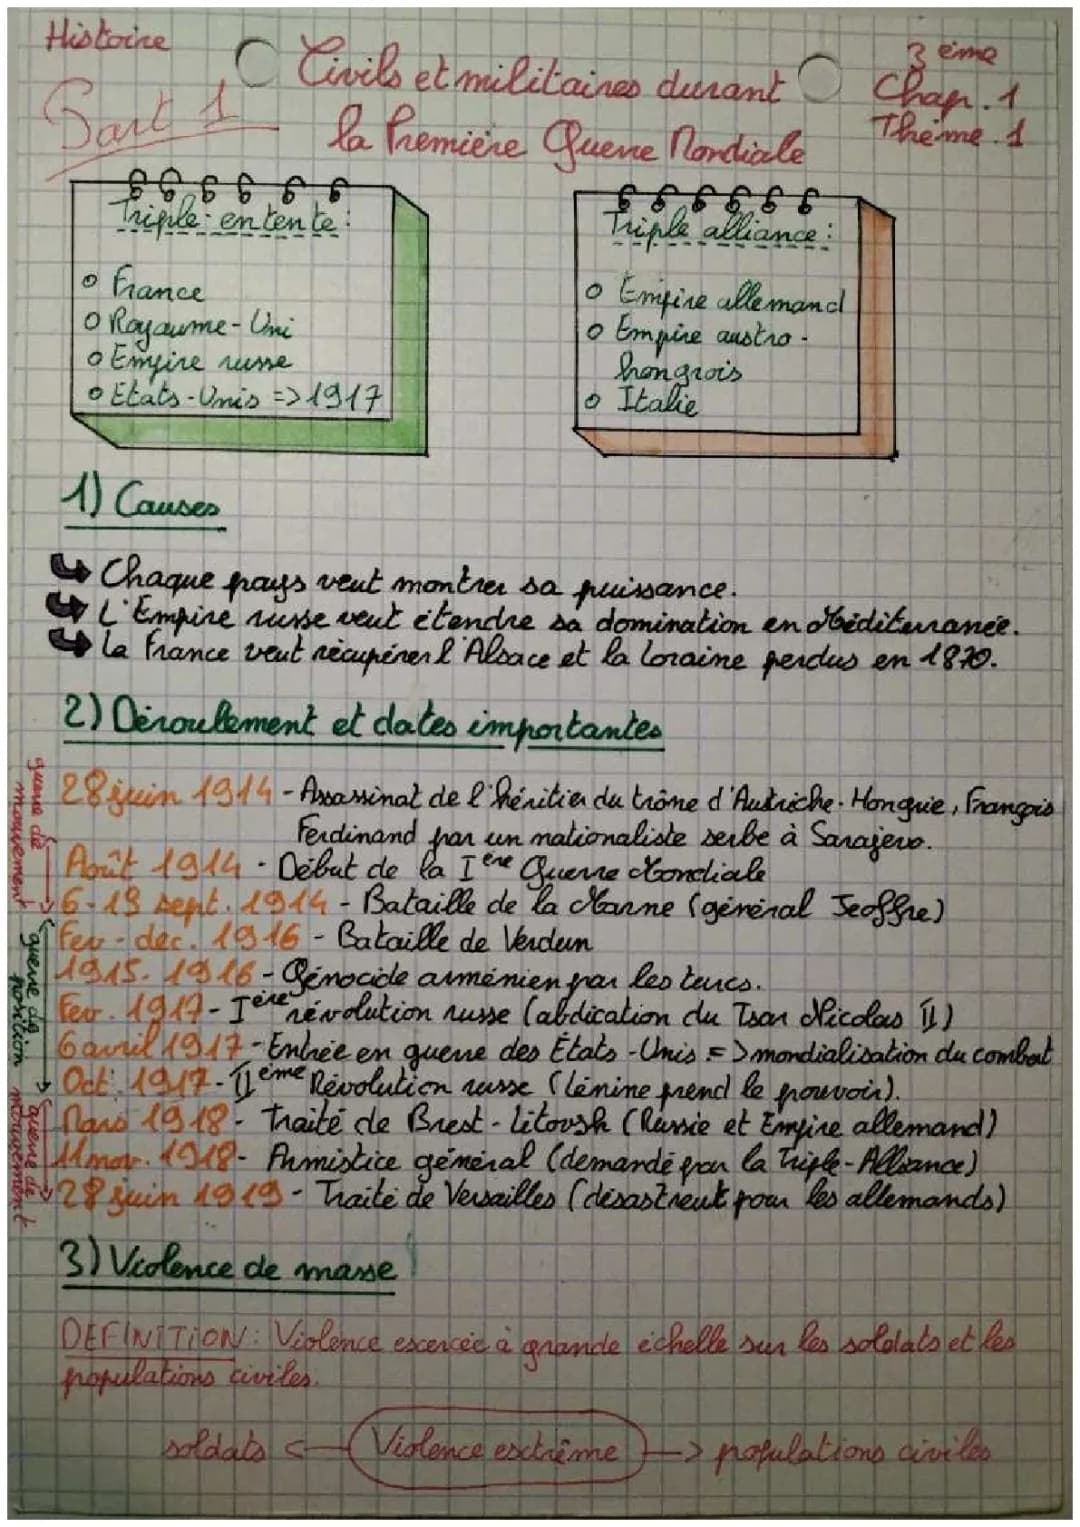 Histoire
Part 1
Civils et militaires durant
la Première Guerre Mondiale
3 ème
Chap. 1
Thème. 1
Triple-entente :
o France
o Royaume-Uni
o Empire russe
o Etats-Unis => 1917
Triple alliance :
o Empire allemand
o Empire austro-
hongrois
o Italie
1) Causes
↳ Chaque pays veut montrer sa puissance.
↳ L'Empire russe veut étendre sa domination en Méditerranée.
↳ La France veut récupérer l'Alsace et la Loraine perdus en 1870.
2) Déroulement et dates importantes
guerre de mouvement
28 juin 1914 - Assassinat de l'héritier du trône d'Autriche-Hongrie, François
Ferdinand par un nationaliste serbe à Sarajevo.
Août 1914 - Début de la Ière Guerre Mondiale
6-13 sept. 1914 - Bataille de la Marne (général Jeoffre)
guerre de position
Fev - déc. 1916 - Bataille de Verdun
1915-1916 - Génocide arménien par les turcs.
Fev. 1917 - Ière révolution russe (abdication du Tsar Nicolas II)
6 avril 1917 - Entrée en guerre des États-Unis => mondialisation du combat
Oct. 1917 - IIème Révolution russe (Lénine prend le pouvoir).
guerre de mouvement
Mars 1918 - Traité de Brest-Litovsh (Russie et Empire allemand)
11 nov. 1918 - Armistice général (demandé par la Triple-Alliance)
28 juin 1919 - Traité de Versailles (désastreux pour les allemands)
3) Violence de masse
DEFINITION : Violence excercée à grande échelle sur les soldats et les
populations civiles.
soldats <— Violence esctrême —> populations civiles